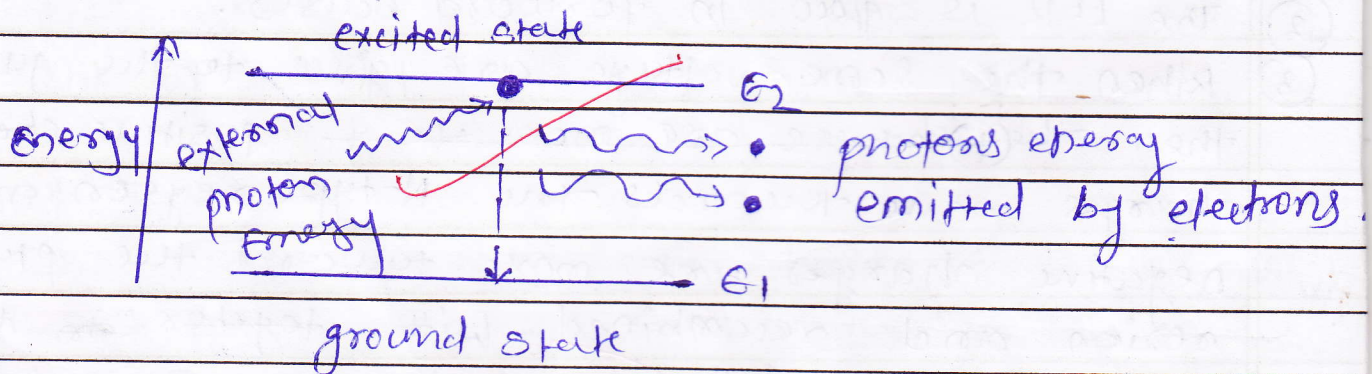 excited state
E2
energy
external
photon
Energy
photons energy
emitted by electrons.
E1
ground state